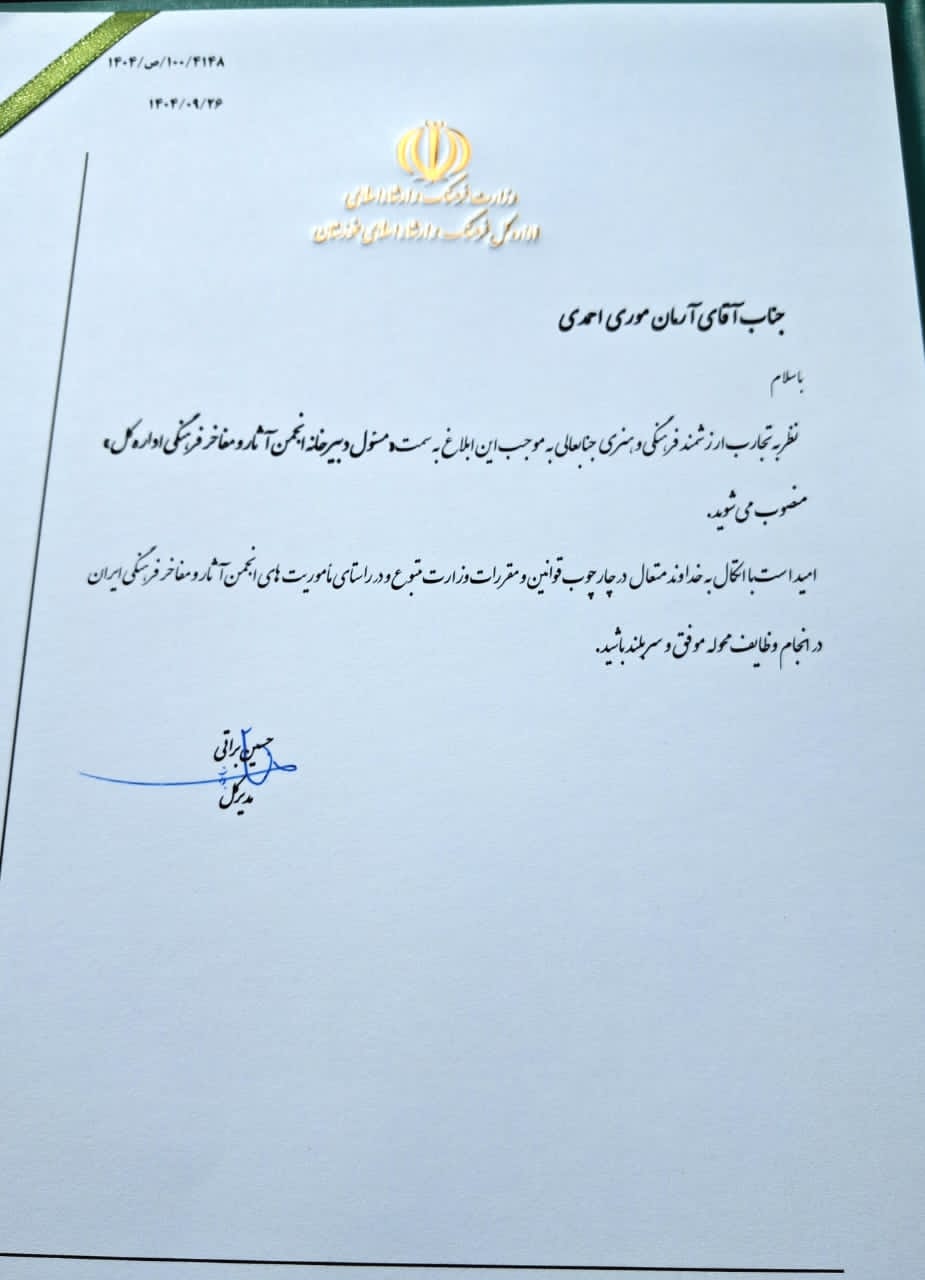 ۱۴۰۴/ص/۱۰۰/۴۱۴۸
۱۴۰۴/۰۹/۲۶
وزارت فرهنگ و ارشاد اسلامی
اداره کل فرهنگ و ارشاد اسلامی خوزستان
جناب آقای آرمان موری احمدی
با سلام
نظر به تجارب ارزشمند فرهنگی و هنری جنابعالی به موجب این ابلاغ به سمت «مسئول دبیرخانه انجمن آثار و مفاخر فرهنگی اداره کل»
منصوب می شوید.
امید است با اتکال به خداوند متعال در چارچوب قوانین و مقررات وزارت متبوع و در راستای مأموریت های انجمن آثار و مفاخر فرهنگی ایران
در انجام وظایف محوله موفق و سربلند باشید.
حسین براتی
مدیرکل